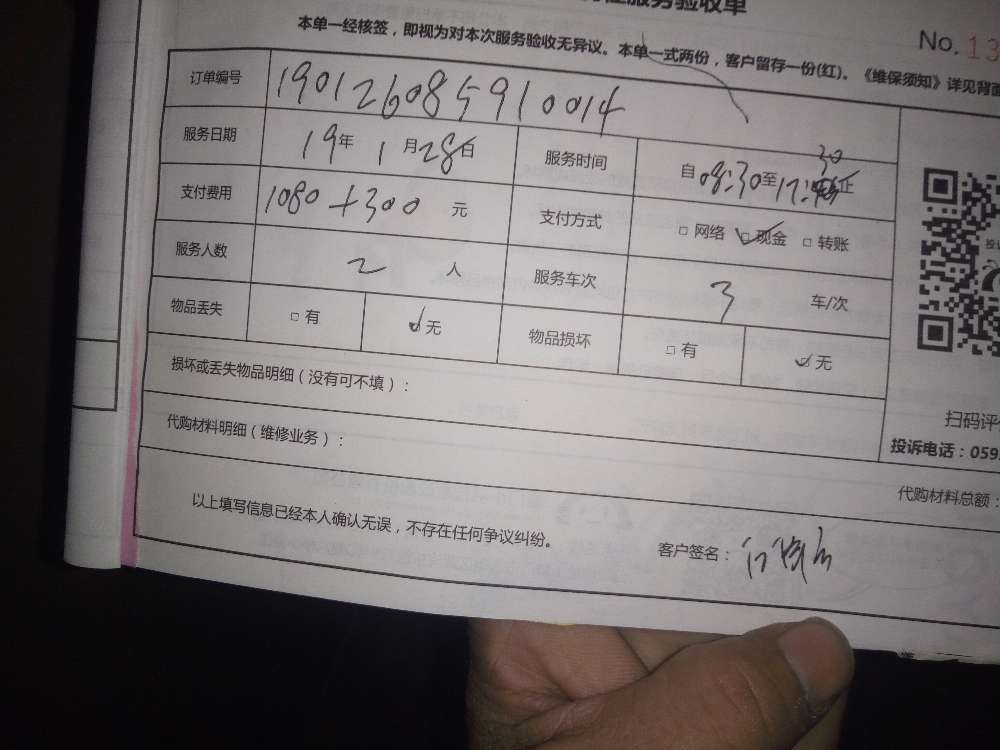 服务验收单
No. 13
本单一经核签，即视为对本次服务验收无异议。本单一式两份，客户留存一份(红)。《维保须知》详见背面
订单编号 190126085910014
服务日期 19年 1月28日 服务时间 自08:30至17:30止
支付费用 1080+300 元 支付方式 □网络 ☑现金 □转账
服务人数 2 人 服务车次 3 车/次
物品丢失 □有 ☑无 物品损坏 □有 ☑无
损坏或丢失物品明细（没有可不填）：
代购材料明细（维修业务）：
扫码评
投诉电话：059
代购材料总额：
以上填写信息已经本人确认无误，不存在任何争议纠纷。
客户签名：